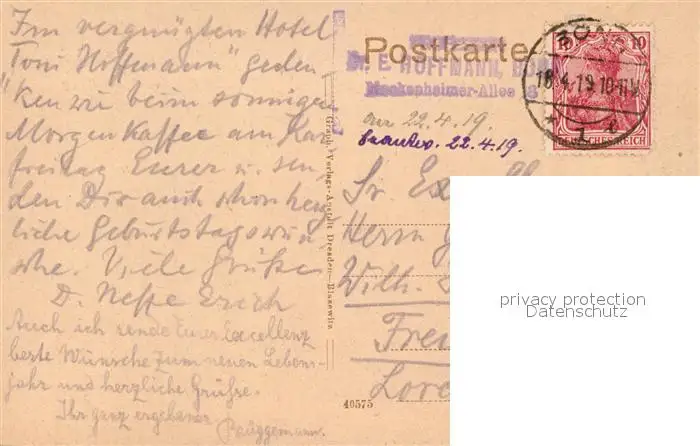 Im vergnügten Hotel
"Toni Hoffmann" geden-
ken wir beim sonnigen
Morgenkaffee am Kar
freitag Eurer u. sen-
den Dir auch schon herz
liche Geburtstagswün
sche. Viele Grüße
D. Neffe Erich
Auch ich sende Eurer Excellenz
beste Wünsche zum neuen Lebens-
jahr und herzliche Grüsse.
Ihr ganz ergebener
Brüggemann.
Graph. Verlags-Anstalt Dresden-Blasewitz
40575
Postkarte
Dr. E. HOFFMANN,
Meckenheimer-Allee
an 22.4.19.
beantw. 22.4.19.
BONN
18.4.19.10-11V.
* 1
10 10
DEUTSCHES REICH
Sr. Ex
Herrn
Wilh.
Frei
Lor
privacy protection
Datenschutz